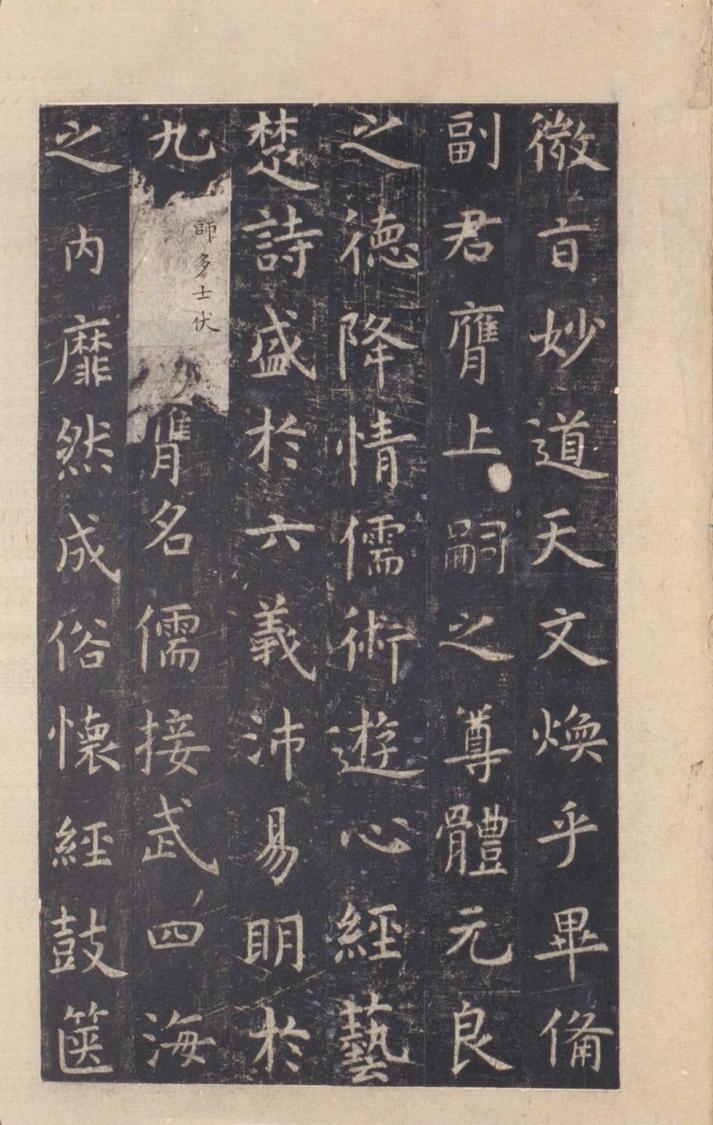 微旨妙道天文煥乎畢備
副君膺上嗣之尊體元良
之德降情儒術遊心經藝
楚詩盛於六義沛易明於
九師多士伏膺名儒接武四海
之内靡然成俗懷經鼓篋